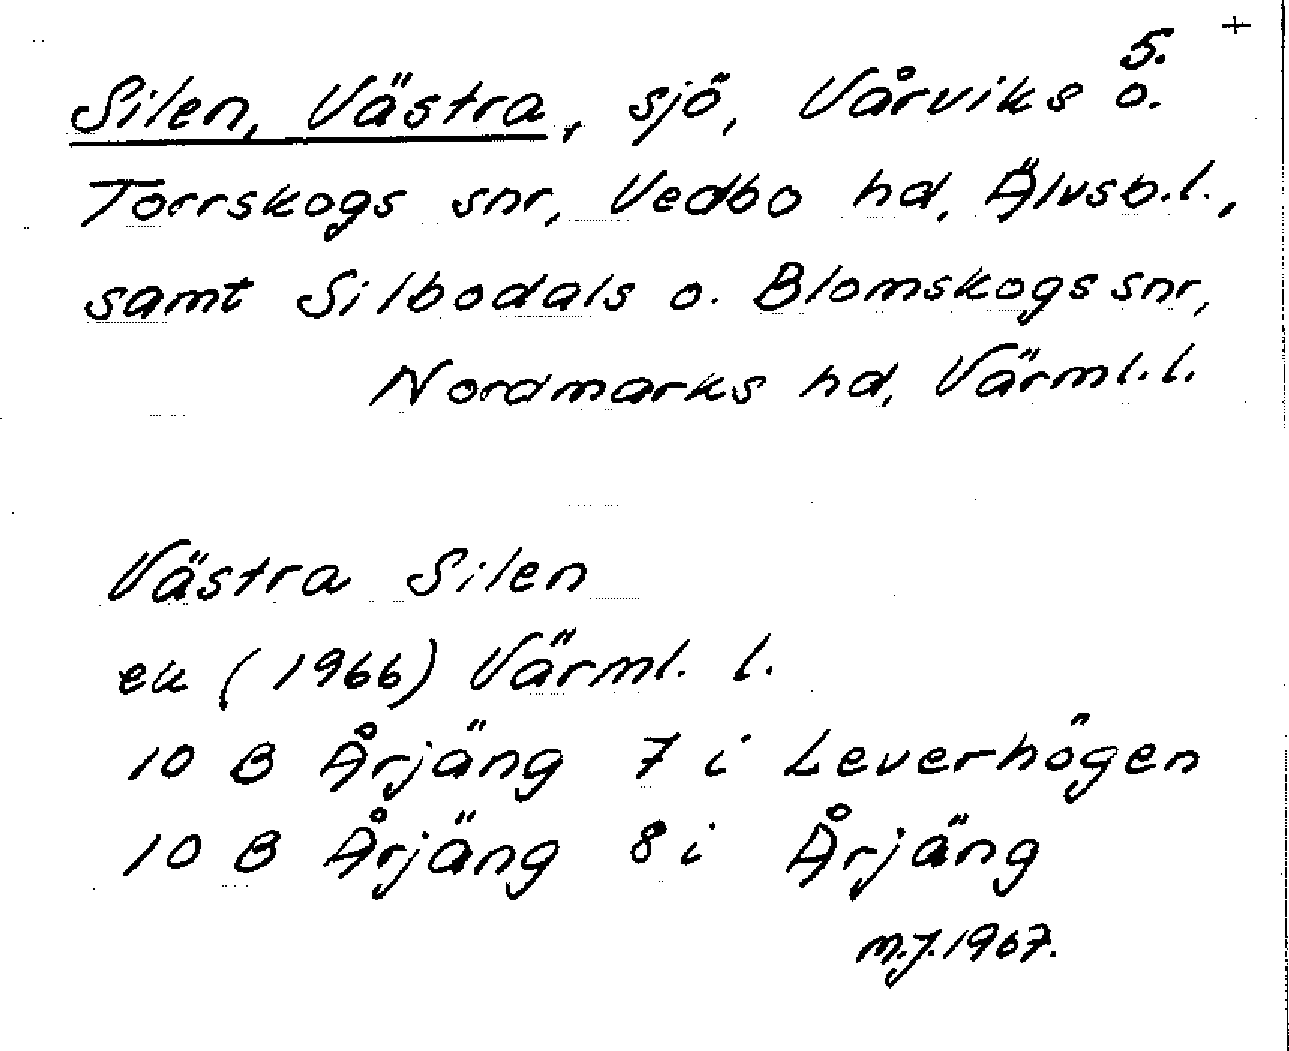 +
5.
Silen, Västra, sjö, Vårviks o.
Torrskogs snr, Vedbo hd, Älvsb.l.,
samt Silbodals o. Blomskogs snr,
Nordmarks hd, Värml.l.
Västra Silen
ek (1966) Värml. l.
10 B Årjäng 7 i Leverhögen
10 B Årjäng 8 i Årjäng
M.J.1967.